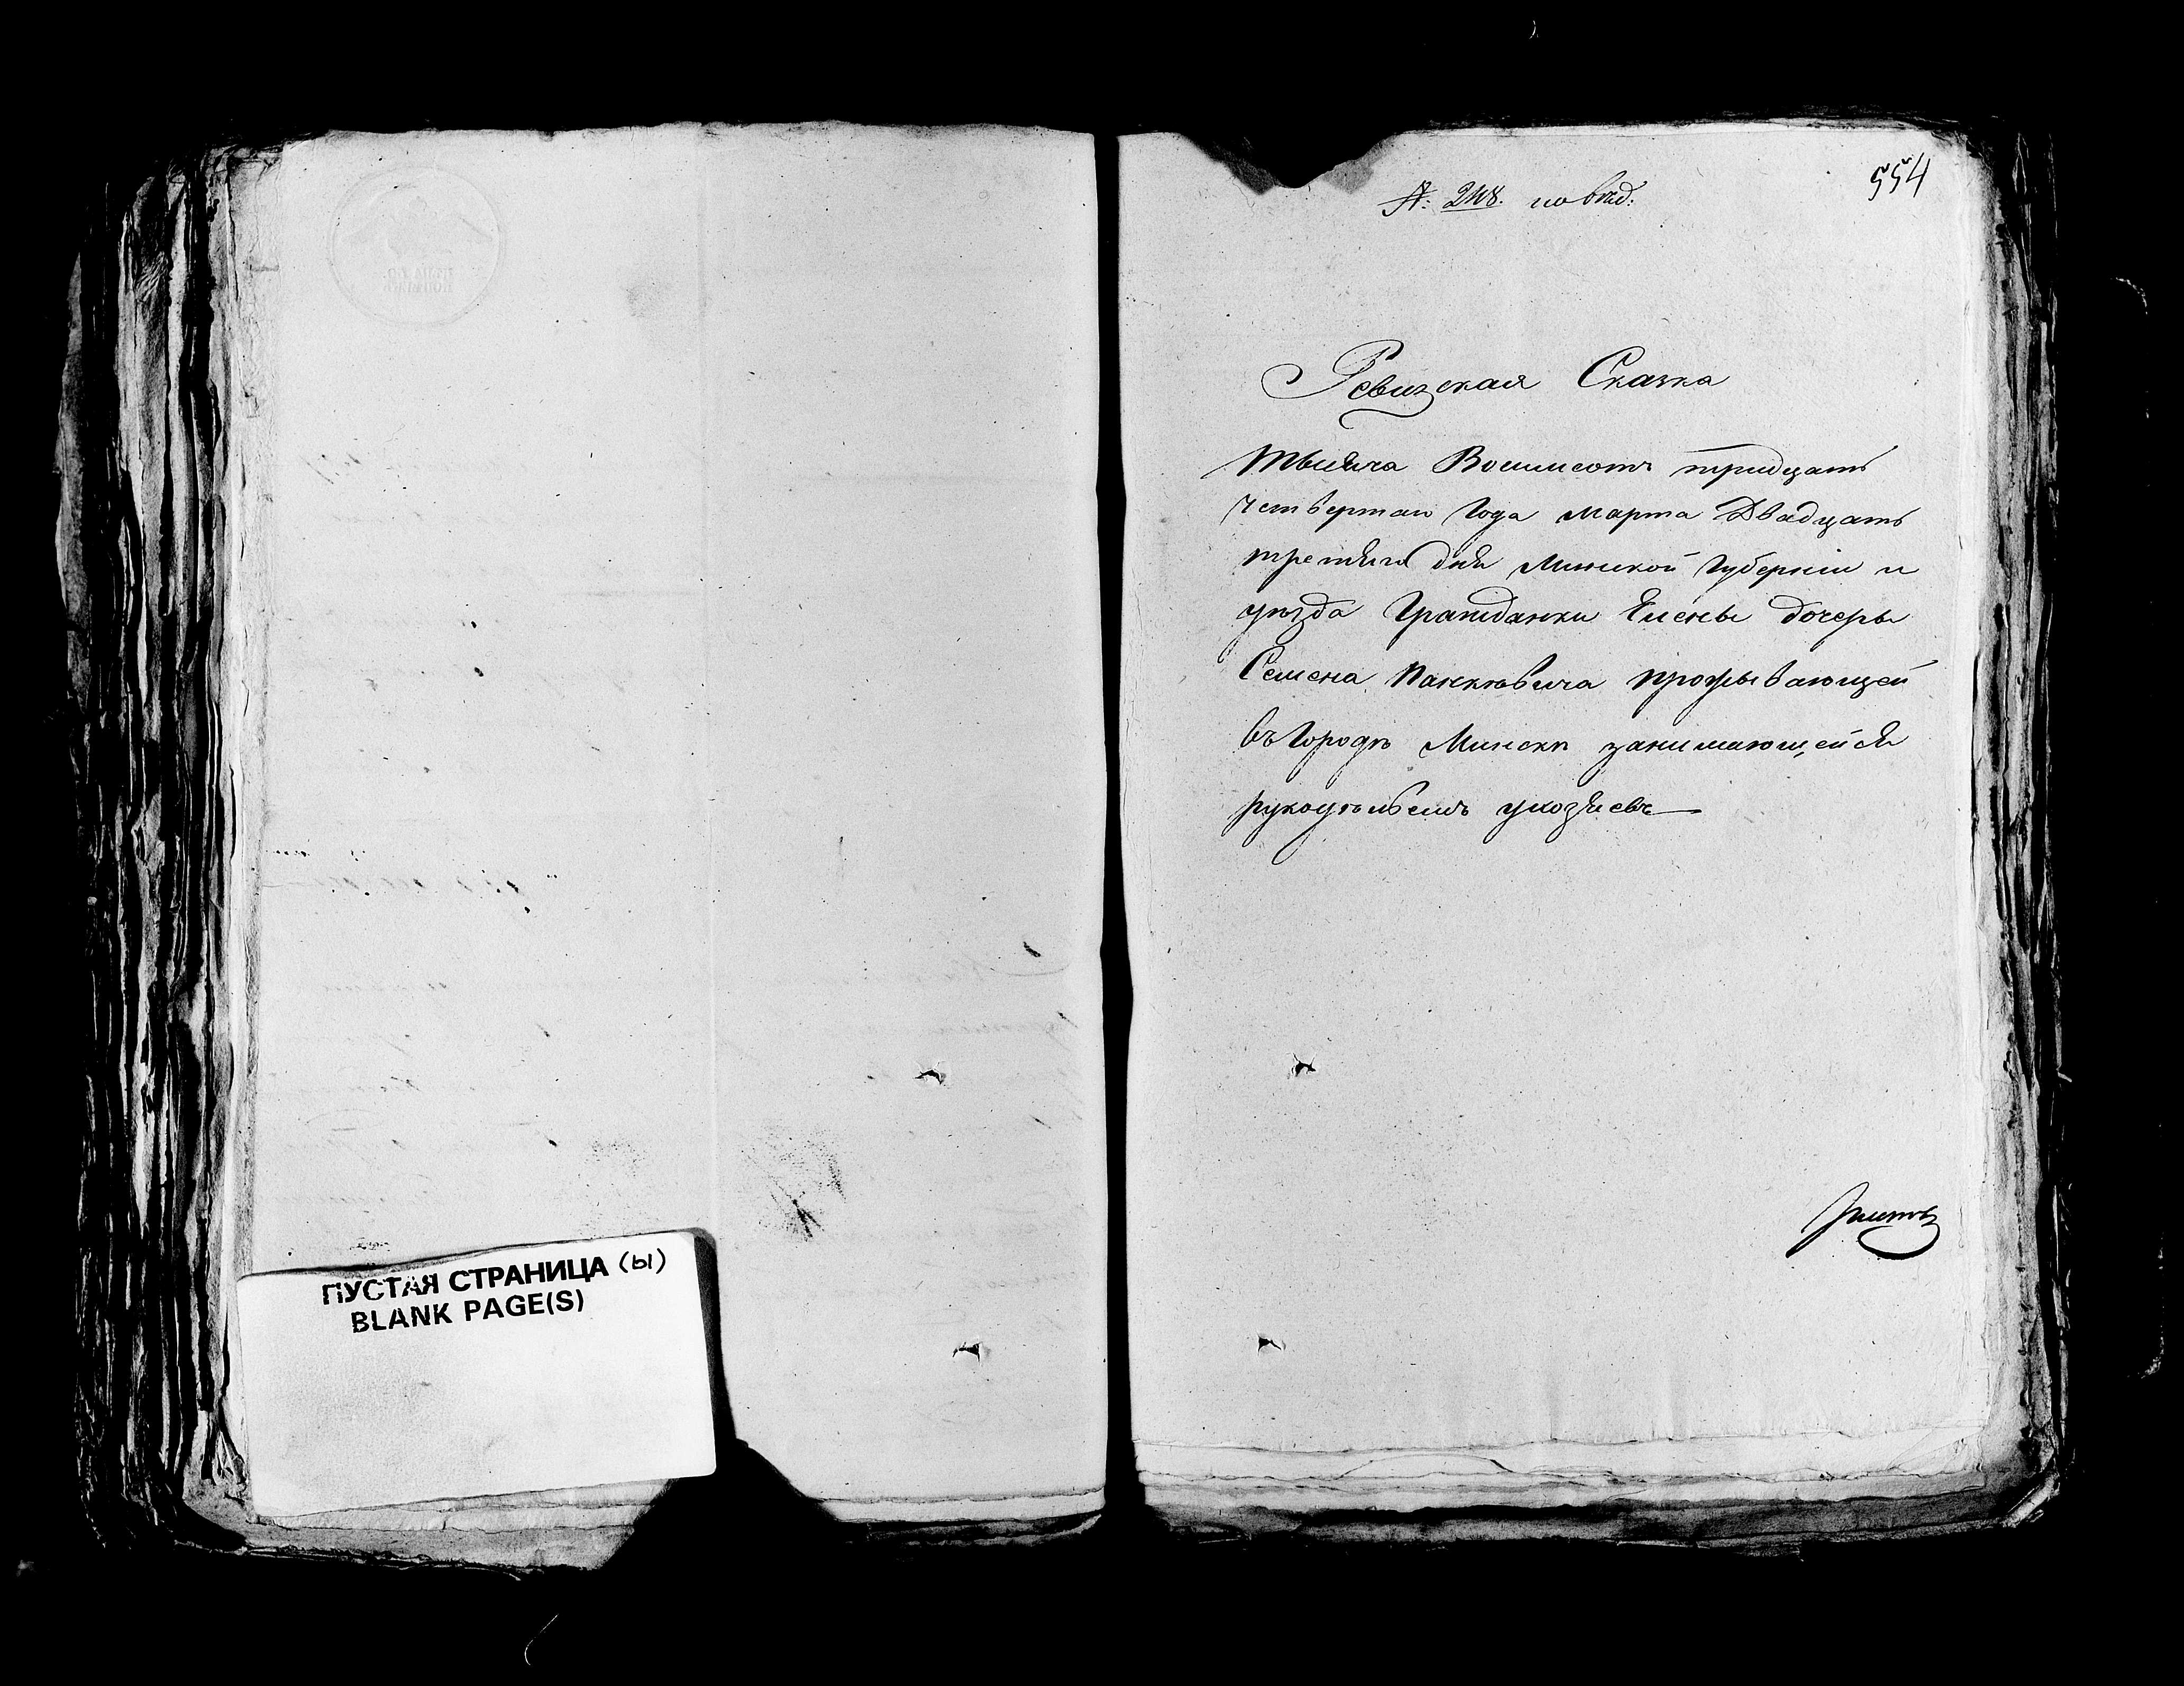 ПУСТАЯ СТРАНИЦА (ы)
BLANK PAGE(S)
554
№: 248.
Ревизская Сказка
Тысяча Восимсотъ тридцать
четвертаго Года Марта Двадцать
третьяго дня Минской Губерніи и
уѣзда Гражданки Елены дочеры
Семена Панкювича прожывающей
въ Городѣ Минскѣ занимающейся
рукодѣлбемъ